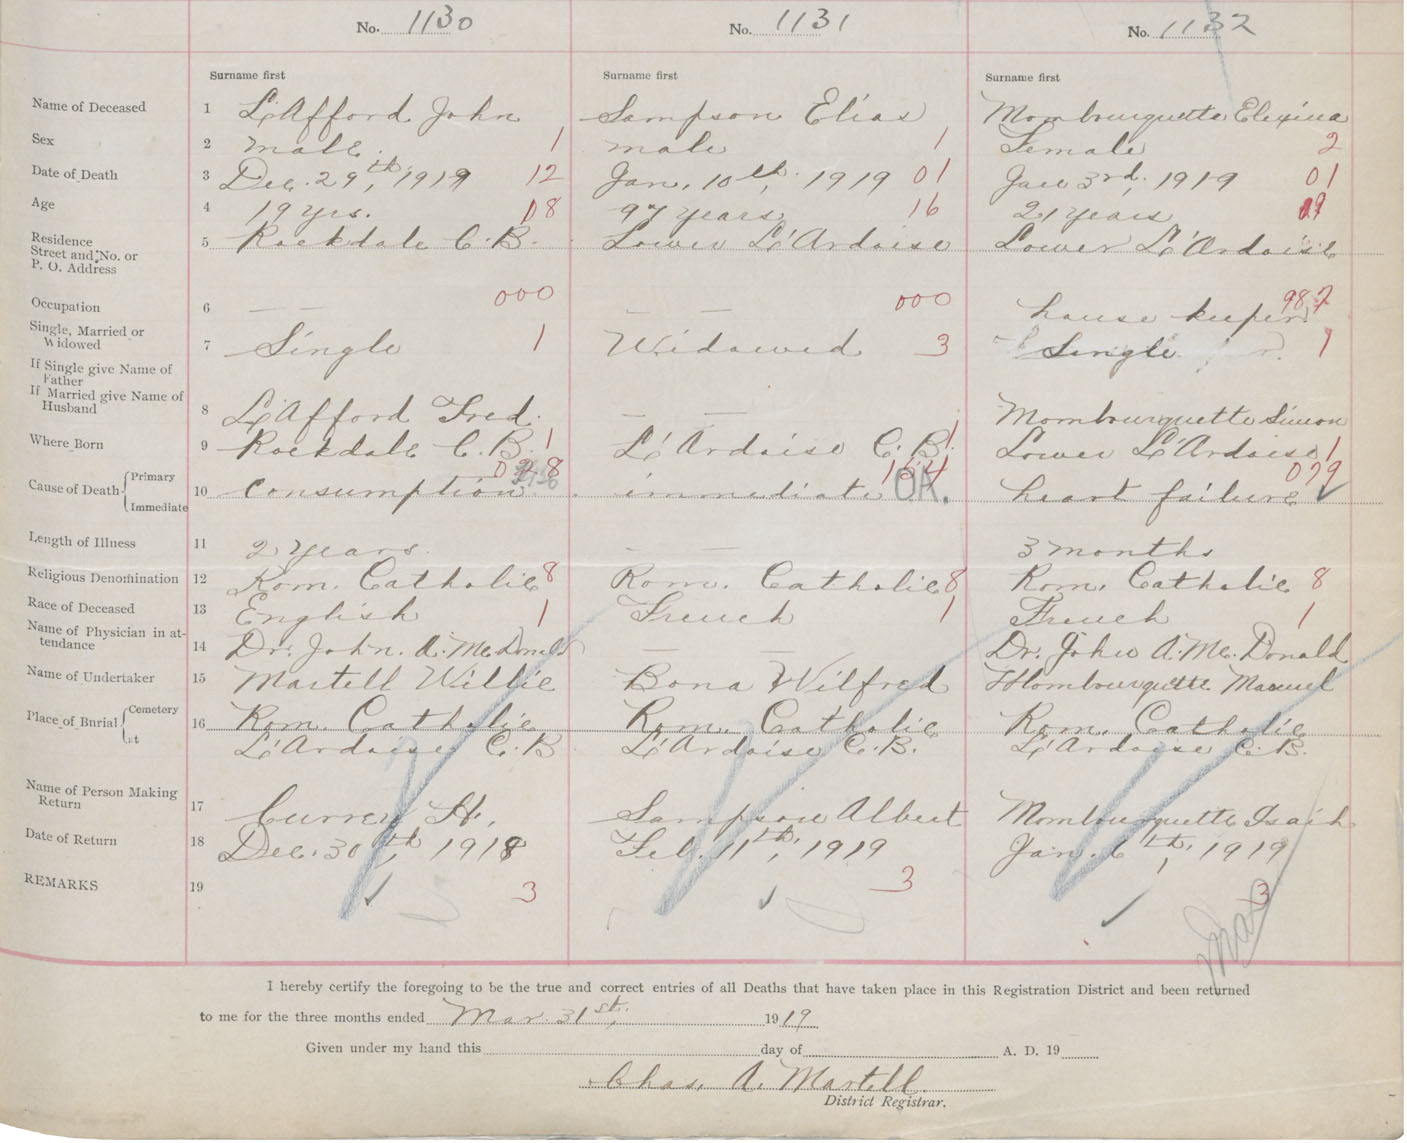 No. 1130 No. 1131 No. 1132
Surname first Surname first Surname first
Name of Deceased 1 L'Afford John Sampson Elias Mombourquette Elexina
Sex 2 male. 1 male 1 Female 2
Date of Death 3 Dec. 29th, 1919 12 Jan. 10th, 1919 01 Jan 3rd, 1919 01
Age 4 19 yrs. 08 97 years 16 21 years
Residence
Street and No. or 5 Rockdale C.B. Lower L'Ardoise Lower L'Ardoise
P. O. Address
Occupation 6 — — 000 — — 000 house keeper 987
Single, Married or
Widowed 7 Single 1 Widowed 3 Single 1
If Single give Name of
Father
If Married give Name of
Husband 8 L'Afford Fred. — — Mombourquette Simon
Where Born 9 Rockdale C.B. 1 L'Ardoise C.B. 1 Lower L'Ardoise 1
028 154 079
Cause of Death Primary
Immediate 10 Consumption immediate OA. heart failure
Length of Illness 11 2 years — — 3 months
Religious Denomination 12 Rom. Catholic 8 Rom. Catholic 8 Rom. Catholic 8
Race of Deceased 13 English 1 French 1 French 1
Name of Physician in at-
tendance 14 Dr. John. A. McDonald — — Dr. John A. Mc. Donald
Name of Undertaker 15 Martell Willie Bona Wilfred Mombourquette Manuel
Place of Burial Cemetery 16 Rom. Catholic Rom. Catholic Rom. Catholic
at L'Ardoise C.B L'Ardoise C.B. L'Ardoise C.B.
Name of Person Making
Return 17 Currey H. Sampson Albert Mombourquette Isaih
Date of Return 18 Dec. 30th, 1918 Feb. 11th, 1919 Jan. 6th, 1919
REMARKS 19 3 3 3
I hereby certify the foregoing to be the true and correct entries of all Deaths that have taken place in this Registration District and been returned
to me for the three months ended Mar. 31st, 1919
Given under my hand this day of A. D. 19
Chas. A. Martell.
District Registrar.